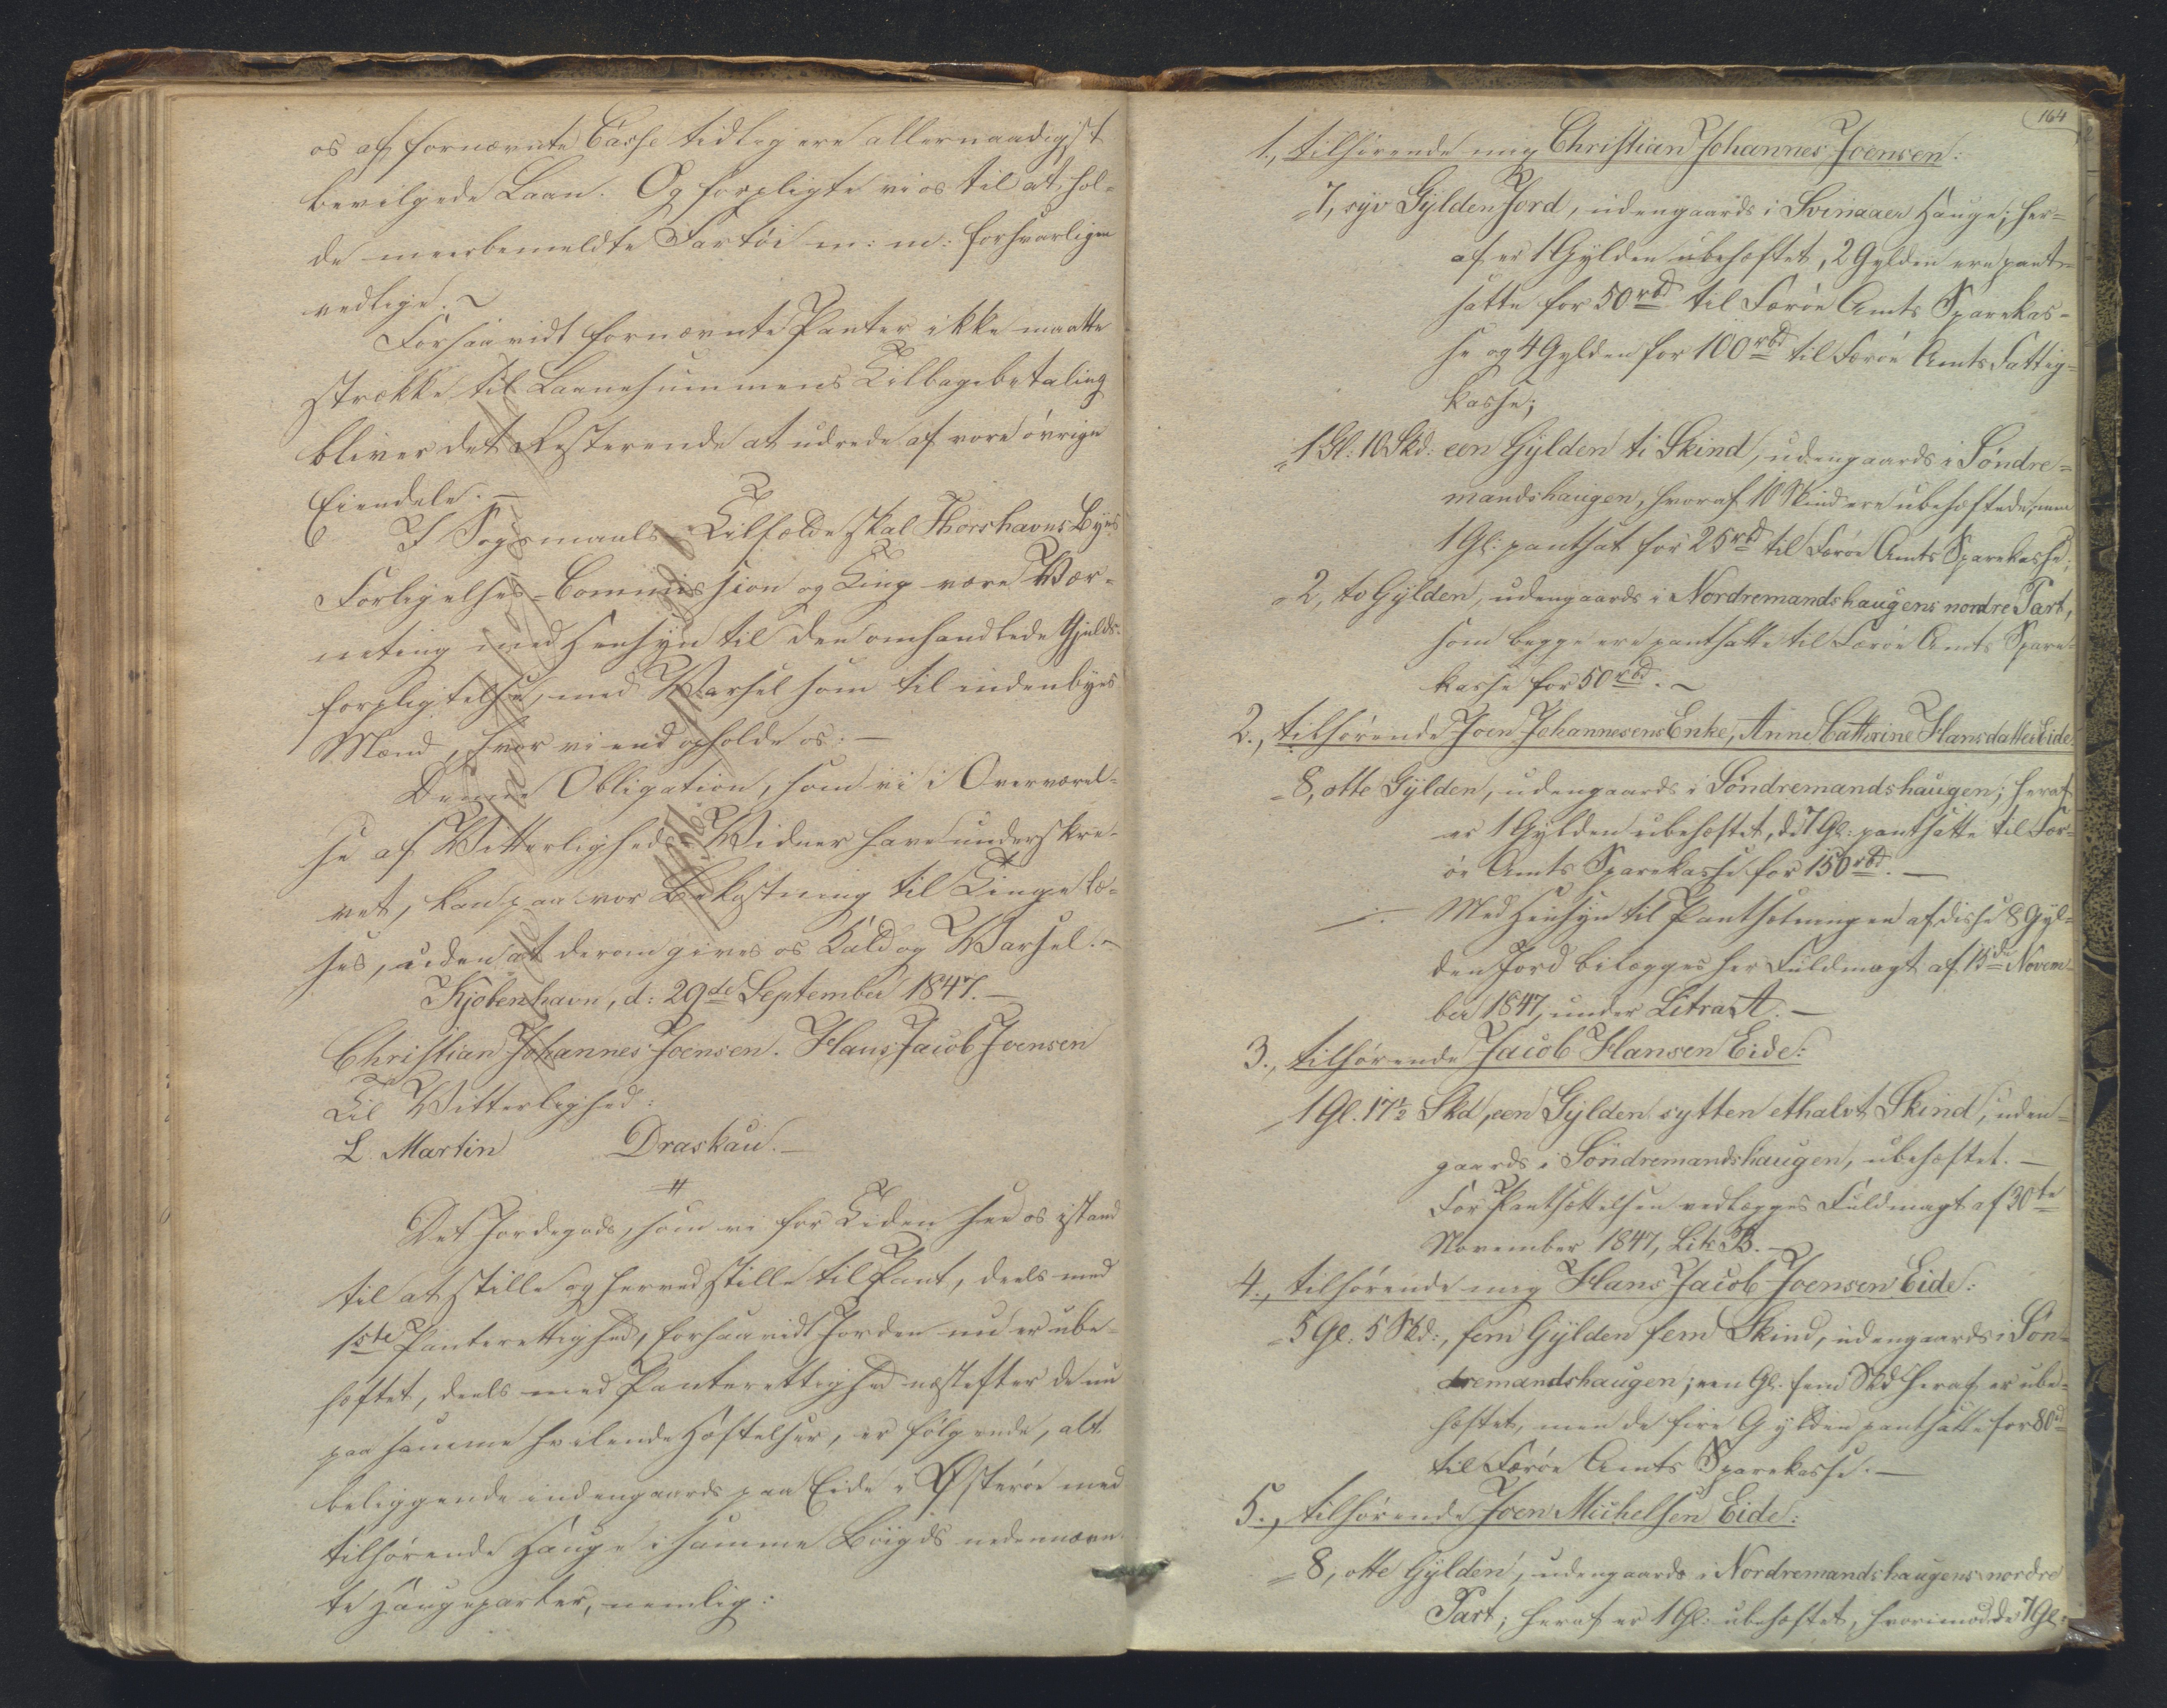 os af fornævnte Casse tidligere allernaadigst
bevilgede Laan. Og forpligte vi os til at hol-
de meerbemeldte Fartöi m: m: forsvarligen
vedlige. ~
Forsaavidt fornævnte Panter ikke maatte
strække til Laanesummens Tilbagebetaling
bliver det Resterende at udrede af vore övrige
Eiendele. —
I Sögsmaals-Tilfælde skal Thorshavns Byes
Forligelses-Commission og Ting være Vær-
neting med Hensyn til den omhandlede Gjelds-
forpligtelse, med Varsel som til indenbyes
Mænd, hvor vi end opholde os. —
Denne Obligation, som vi i Overværel-
se af Vitterligheds Vidner have underskre-
vet, kan paa vor Bekostning til Tinge læ-
ses, uden at derom gives os Kald og Varsel. ~
Kjöbenhavn, d: 29de September 1847. —
Christian Johannes Joensen. Hans Jacob Joensen
Til Vitterlighed:
L. Martin Draskau. —
#
Det Jordegods, som vi for Tiden see os istand
til at stille og herved stille til Pant, deels med
1ste Panterettighed, forsaavidt Jorden nu er ube-
hæftet, deels med Panterettighed næstefter de nu
paa samme hvilende Hæftelser, er fölgende, alt
beliggende indengaards paa Eide i Österöe med
tilhörende Hauge i samme Böigds nedennævn-
te Haugeparter, nemlig:
164
1., tilhörende mig Christian Johannes Joensen:
7, syv Gylden Jord, udengaards i Svinaaer Hauge; her-
af er 1 Gylden ubehæftet, 2 Gylden ere pant-
satte for 50 rbd til Færöe Amts Sparekas-
se og 4 Gylden for 100 rbd til Færöe Amts Fattig-
kasse;
1 Gl: 10 Skd: een Gylden ti Skind, udengaards i Söndre-
mandshaugen, hvoraf 10 Skind ere ubehæftede, men
1 Gl: pantsat for 25 rbd til Færöe Amts Sparekasse;
2, to Gylden, udengaards i Nordremandshaugens nordre Part,
som begge ere pantsatte til Færöe Amts Spare-
kasse for 50 rbd. ~
2., tilhörende Joen Johannesens Enke, Anne Cathrine Hansdatter Eide
8, otte Gylden, udengaards i Söndremandshaugen; heraf
er 1 Gylden ubehæftet, de 7 Gl: pantsatte til Fær-
öe Amts Sparekasse for 150 rbd. —
Med Hensyn til Pantsætningen af disse 8 Gyl-
den Jord bilægges her Fuldmagt af 15de Novem-
ber 1847, under Litra A. —
3., tilhörende Jacob Hansen Eide:
1 Gl. 17½ Skd, een Gylden sytten ethalvt Skind, uden-
gaards i Söndremandshaugen, ubehæftet. —
For Pantsættelsen vedlægges Fuldmagt af 30te
November 1847, Lit. B. —
4., tilhörende mig Hans Jacob Joensen Eide:
5 Gl: 5 Skd:, fem Gylden fem Skind, udengaards i Sön-
dremandshaugen; een Gl: fem Skd heraf er ube-
hæftet, men de fire Gylden pantsatte for 80 rd
til Færöe Amts Sparekasse. —
5., tilhörende Joen Michelsen Eide:
8, otte Gylden, udengaards i Nordremandshaugens nordre
Part; heraf er 1 Gl: ubehæftet, hvorimod de 7 Gl: